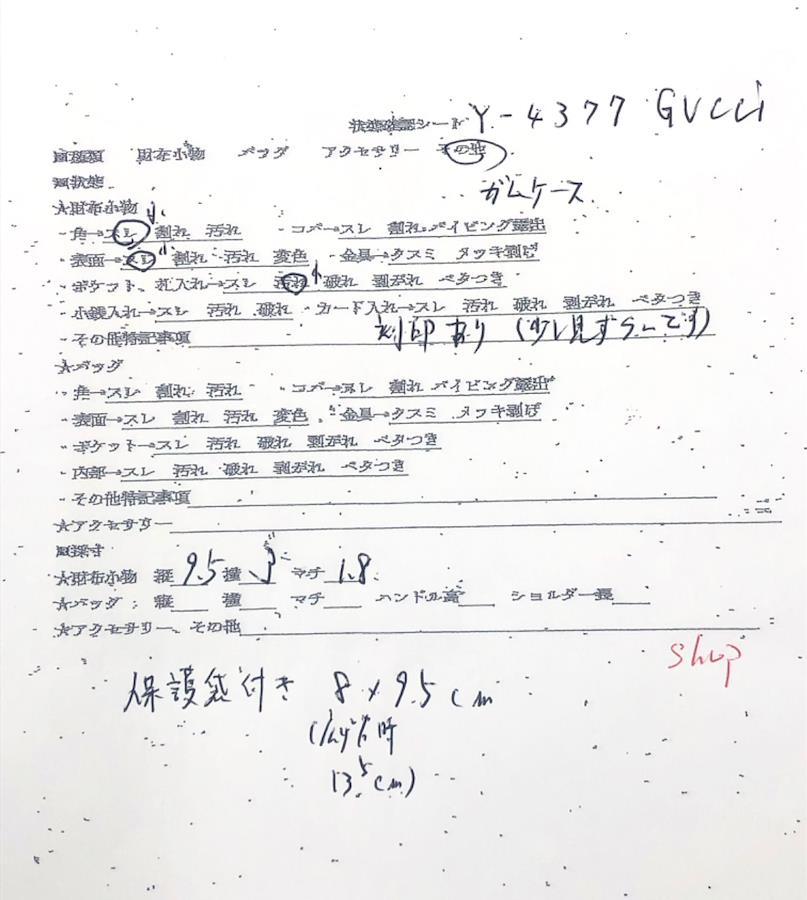 状態確認シート Y-4377 GUCCI
種類 財布小物 バッグ アクセサリー その他
ガムケース
状態
★財布小物 小
・角→スレ 割れ 汚れ ・コバ→スレ 割れ パイピング露出
・表面→スレ 小 割れ 汚れ 変色 ・金具→クスミ メッキ剥げ
・ポケット、札入れ→スレ 汚れ 小 破れ 剥がれ ベタつき
・小銭入れ→スレ 汚れ 破れ ・カード入れ→スレ 汚れ 破れ 剥がれ ベタつき
・その他特記事項 刻印あり (少し見ずらいです)
★バッグ
・角→スレ 割れ 汚れ ・コバ→スレ 割れ パイピング露出
・表面→スレ 割れ 汚れ 変色 ・金具→クスミ メッキ剥げ
・ポケット→スレ 汚れ 破れ 剥がれ ベタつき
・内部→スレ 汚れ 破れ 剥がれ ベタつき
・その他特記事項
★アクセサリー
採寸
★財布小物 縦 9.5 横 3 マチ 1.8
★バッグ：縦 横 マチ ハンドル高 ショルダー長
★アクセサリー、その他
shop
保護袋付き 8×9.5cm
時
13.5cm)